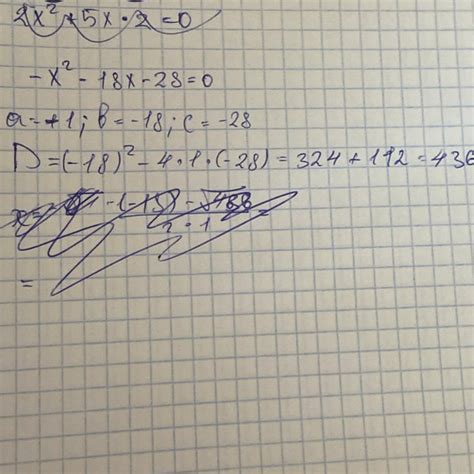 2x² + 5x · 2 = 0
- x² - 18x - 28 = 0
a = -1; b = -18; c = -28
D = (-18)² - 4 · 1 · (-28) = 324 + 112 = 436
=